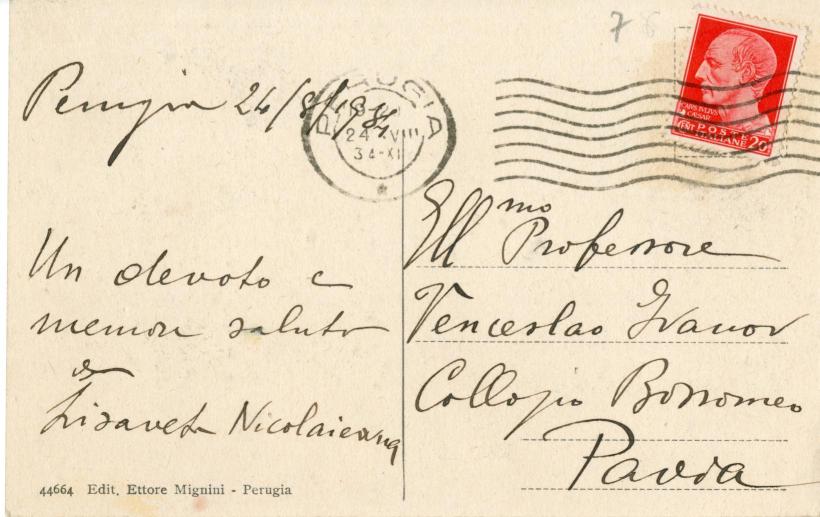 7
Perugia 24/8/1934
PERUGIA
24·VIII
34-XI
CAIVS IVLIVS
CAESAR
POSTE
CENT ITALIANE 20
Un devoto e
memore saluto
da
Lisaveta Nicolaievna
Ill.mo Professore
Venceslao Ivanov
Collegio Borromeo
Pavia
44664 Edit. Ettore Mignini - Perugia